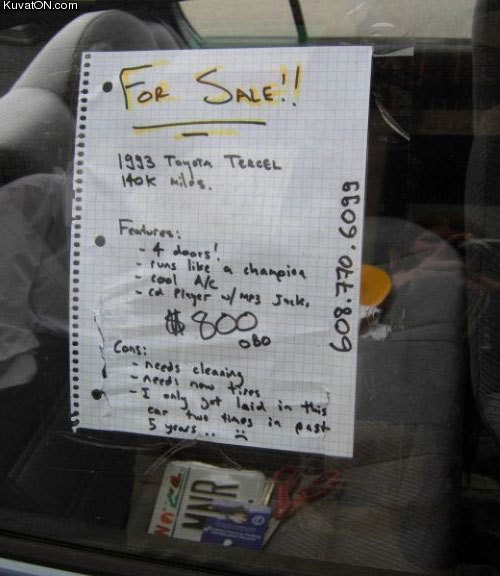 KuvatON.com
FOR SALE!!
1993 TOYOTA TERCEL
140K miles.
Features:
- 4 doors!
- runs like a champion
- cool A/C
- cd player w/ mp3 jack.
$800
OBO
Cons:
- needs cleaning
- needs new tires
- I only got laid in this
car two times in past
5 years.. :(
608.770.6099
WNR